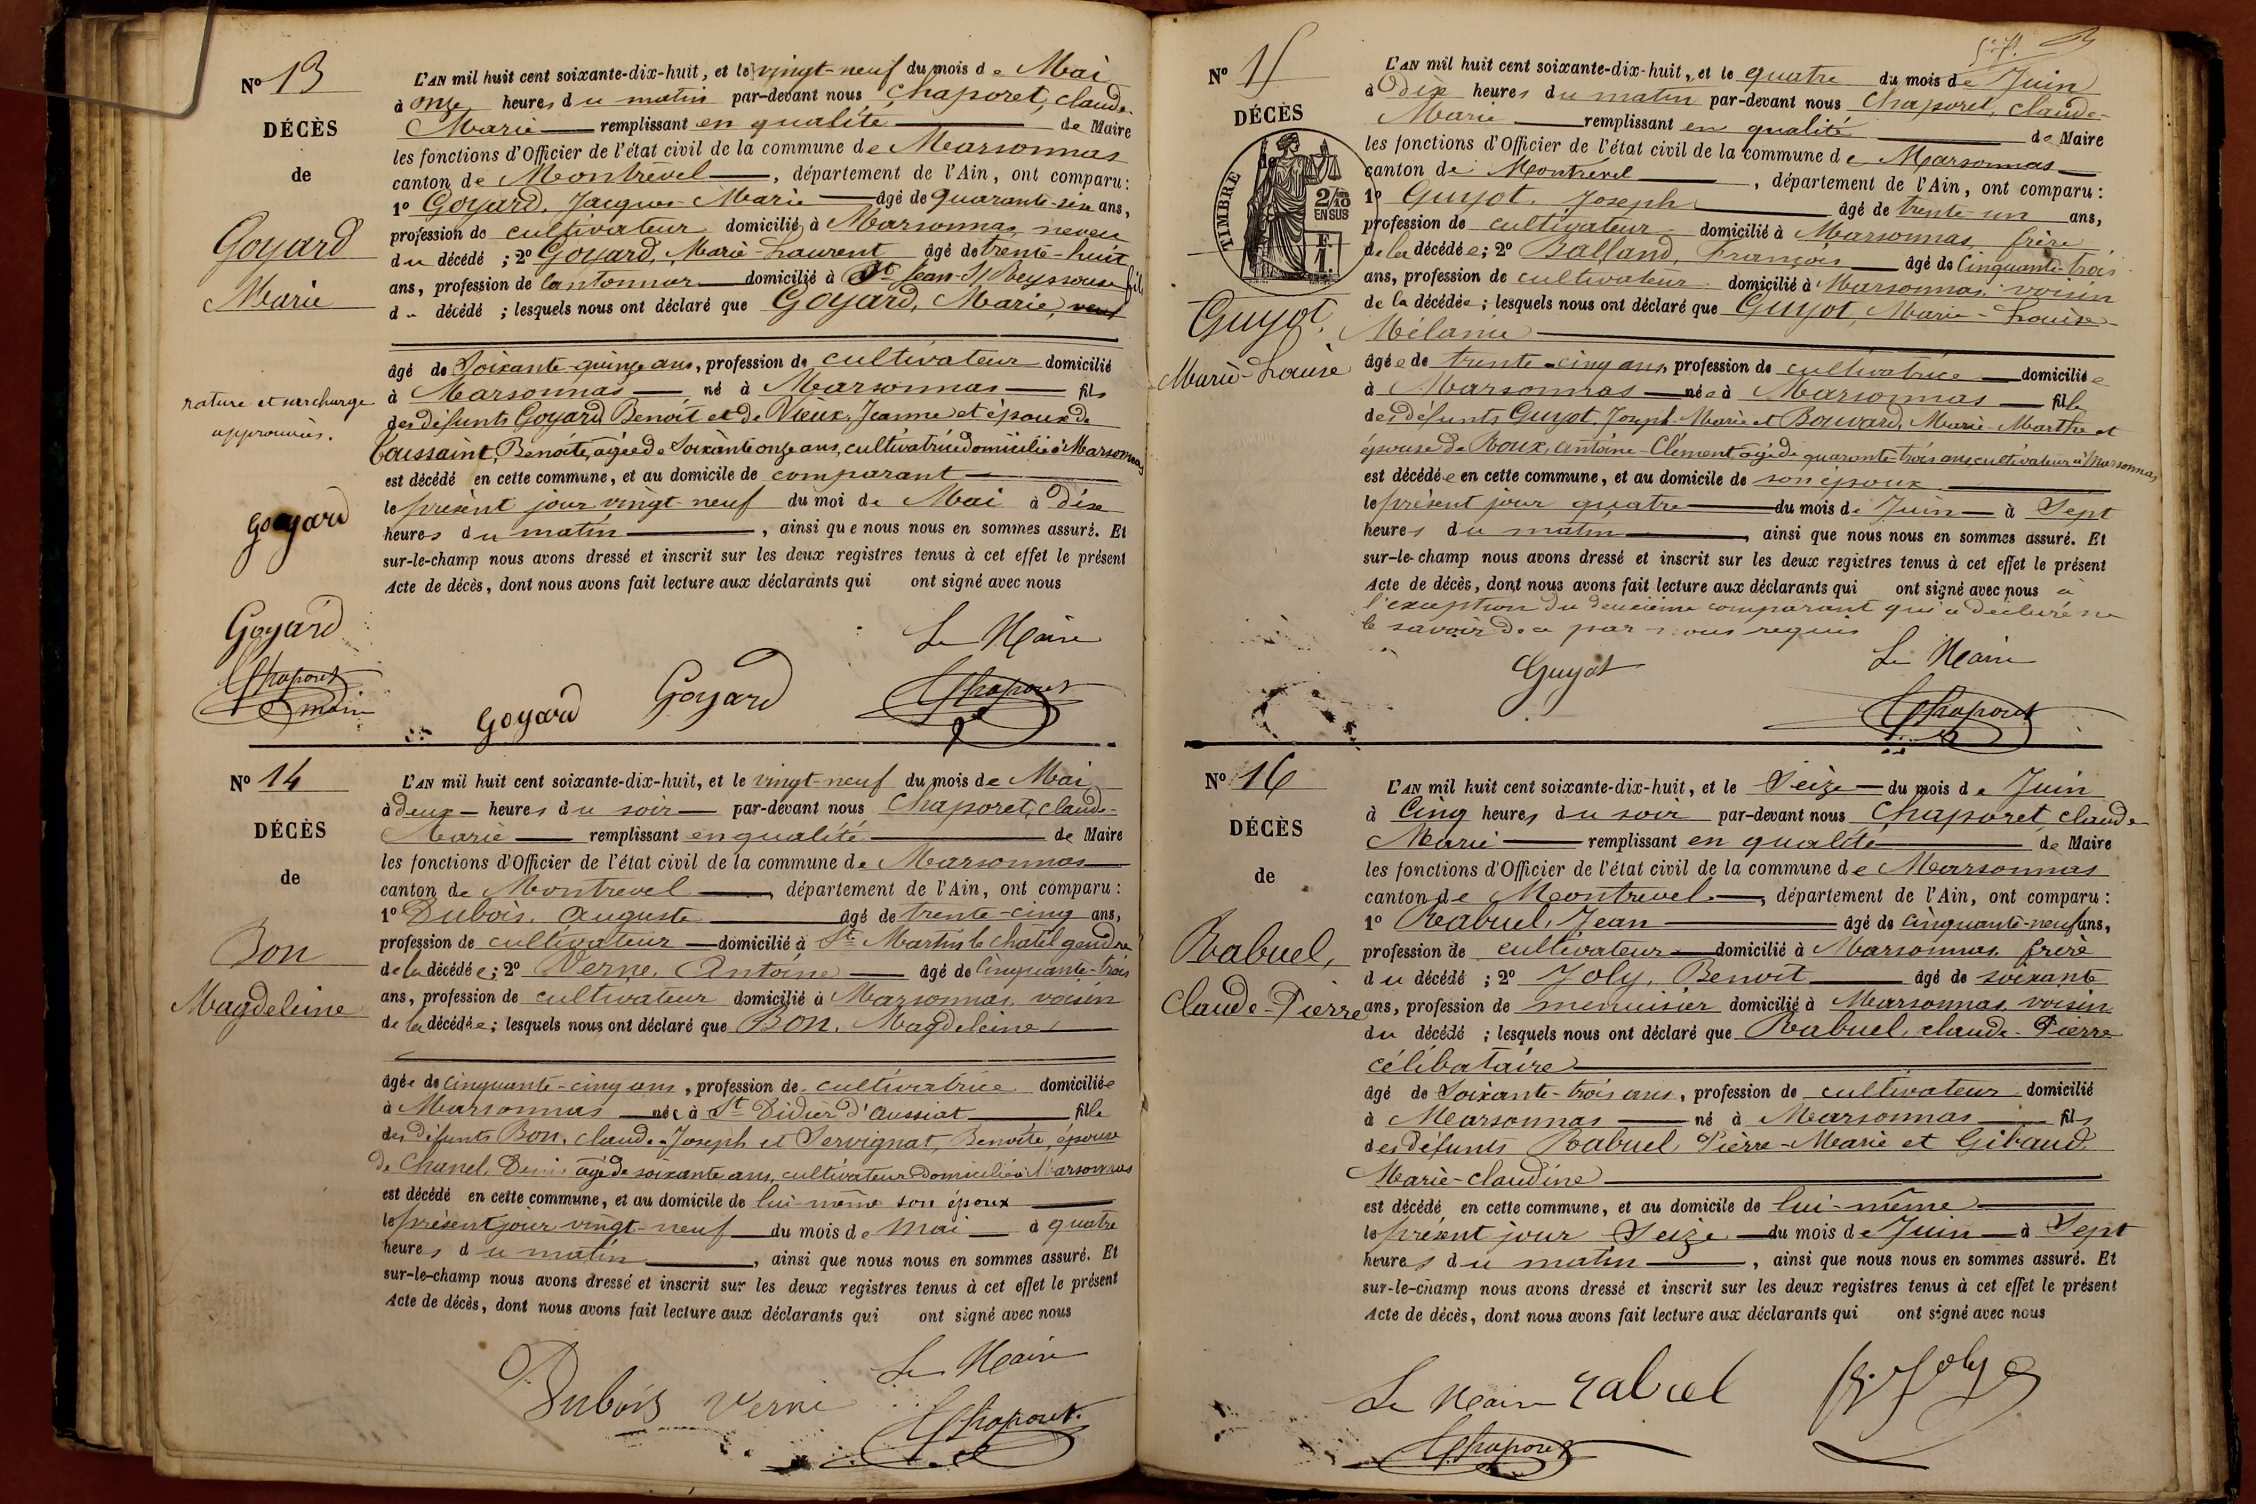 Nº 13
DÉCÈS
de
Goyard
Marie
L'AN mil huit cent soixante-dix-huit, et le vingt-neuf du mois de Mai
à onze heures du matin par-devant nous Chaporet, Claude-
Marie remplissant en qualité de Maire
les fonctions d'Officier de l'état civil de la commune de Marsonnas
canton de Montrevel, département de l'Ain, ont comparu:
1º Goyard, Jacques-Marie âgé de quarante-six ans,
profession de cultivateur domicilié à Marsonnas, neveu
du décédé ; 2º Goyard, Marie-Laurent âgé de trente-huit
ans, profession de Cantonnier domicilié à St Jean-S/Reyssouse fils
du décédé ; lesquels nous ont déclaré que Goyard, Marie,
âgé de Soixante-quinze ans, profession de cultivateur domicilié
à Marsonnas né à Marsonnas fils
des défunts Goyard Benoît et de Vieux, Jeanne et époux de
Toussaint, Benoîte, âgée de Soixante onze ans, cultivatrice domiciliée à Marsonnas
est décédé en cette commune, et au domicile de comparant
le présent jour vingt-neuf du moi de Mai à Dix
heures du matin, ainsi que nous nous en sommes assuré. Et
sur-le-champ nous avons dressé et inscrit sur les deux registres tenus à cet effet le présent
Acte de décès, dont nous avons fait lecture aux déclarants qui ont signé avec nous
rature et surcharge
approuvées.
Goyard
Goyard
Chaporet
maire
Le Maire
Goyard Goyard Chaporet
Nº 14
DÉCÈS
de
Bon
Magdeleine
L'AN mil huit cent soixante-dix-huit, et le vingt-neuf du mois de Mai
à deux heures du soir par-devant nous Chaporet, Claude-
Marie remplissant en qualité de Maire
les fonctions d'Officier de l'état civil de la commune de Marsonnas
canton de Montrevel, département de l'Ain, ont comparu:
1º Dubois, Auguste âgé de trente-cinq ans,
profession de cultivateur domicilié à St Martin le chatel gendre
de la décédée; 2º Verne, Antoine âgé de Cinquante-trois
ans, profession de cultivateur domicilié à Marsonnas, voisin
de la décédée; lesquels nous ont déclaré que Bon, Magdeleine
âgée de Cinquante-cinq ans, profession de cultivatrice domiciliée
à Marsonnas née à St Didier d'Aussiat fille
des défunts Bon, Claude-Joseph et Servignat, Benoîte, épouse
de Chanel, Denis âgé de soixante ans, cultivateur domicilié à Marsonnas
est décédé en cette commune, et au domicile de lui-même son époux
le présent jour vingt-neuf du mois de Mai à quatre
heures du matin, ainsi que nous nous en sommes assuré. Et
sur-le-champ nous avons dressé et inscrit sur les deux registres tenus à cet effet le présent
Acte de décès, dont nous avons fait lecture aux déclarants qui ont signé avec nous
Le Maire
Dubois Verne Chaporet
Nº 15
DÉCÈS
TIMBRE
2/10
EN SUS
Guyot,
Marie-Louise
L'AN mil huit cent soixante-dix-huit, et le quatre du mois de Juin
à Dix heures du matin par-devant nous Chaporet, Claude-
Marie remplissant en qualité de Maire
les fonctions d'Officier de l'état civil de la commune de Marsonnas
canton de Montrevel, département de l'Ain, ont comparu:
1º Guyot, Joseph âgé de trente-un ans,
profession de cultivateur domicilié à Marsonnas, frère
de la décédée; 2º Balland, François âgé de Cinquante-trois
ans, profession de cultivateur domicilié à Marsonnas, voisin
de la décédée ; lesquels nous ont déclaré que Guyot, Marie-Louise-
Mélanie
âgée de trente-cinq ans, profession de cultivatrice domiciliée
à Marsonnas née à Marsonnas fille
des défunts Guyot, Joseph-Marie et Bouvard, Marie-Marthe et
épouse de Roux, Antoine-Clément, âgé de quarante-trois ans, cultivateur à Marsonnas
est décédée en cette commune, et au domicile de son époux
le présent jour quatre du mois de Juin à Sept
heures du matin, ainsi que nous nous en sommes assuré. Et
sur-le-champ nous avons dressé et inscrit sur les deux registres tenus à cet effet le présent
Acte de décès, dont nous avons fait lecture aux déclarants qui ont signé avec nous à
l'exception du deuxième comparant qui a déclaré ne
le savoir de ce par nous requis
Le Maire
Guyot Chaporet
Nº 16
DÉCÈS
de
Rabuel,
Claude-Pierre
L'AN mil huit cent soixante-dix-huit, et le Seize du mois de Juin
à Cinq heures du soir par-devant nous Chaporet, Claude
Marie remplissant en qualité de Maire
les fonctions d'Officier de l'état civil de la commune de Marsonnas
canton de Montrevel, département de l'Ain, ont comparu:
1º Rabuel, Jean âgé de Cinquante-neuf ans,
profession de cultivateur domicilié à Marsonnas, frère
du décédé ; 2º Joly, Benoît âgé de soixante
ans, profession de menuisier domicilié à Marsonnas, voisin
du décédé ; lesquels nous ont déclaré que Rabuel, Claude-Pierre
célibataire
âgé de Soixante-trois ans, profession de cultivateur domicilié
à Marsonnas né à Marsonnas fils
des défunts Rabuel, Pierre-Marie et Gibaud
Marie-Claudine
est décédé en cette commune, et au domicile de lui-même
le présent jour Seize du mois de Juin à Sept
heures du matin, ainsi que nous nous en sommes assuré. Et
sur-le-champ nous avons dressé et inscrit sur les deux registres tenus à cet effet le présent
Acte de décès, dont nous avons fait lecture aux déclarants qui ont signé avec nous
Le Maire rabuel B. Joly
Chaporet